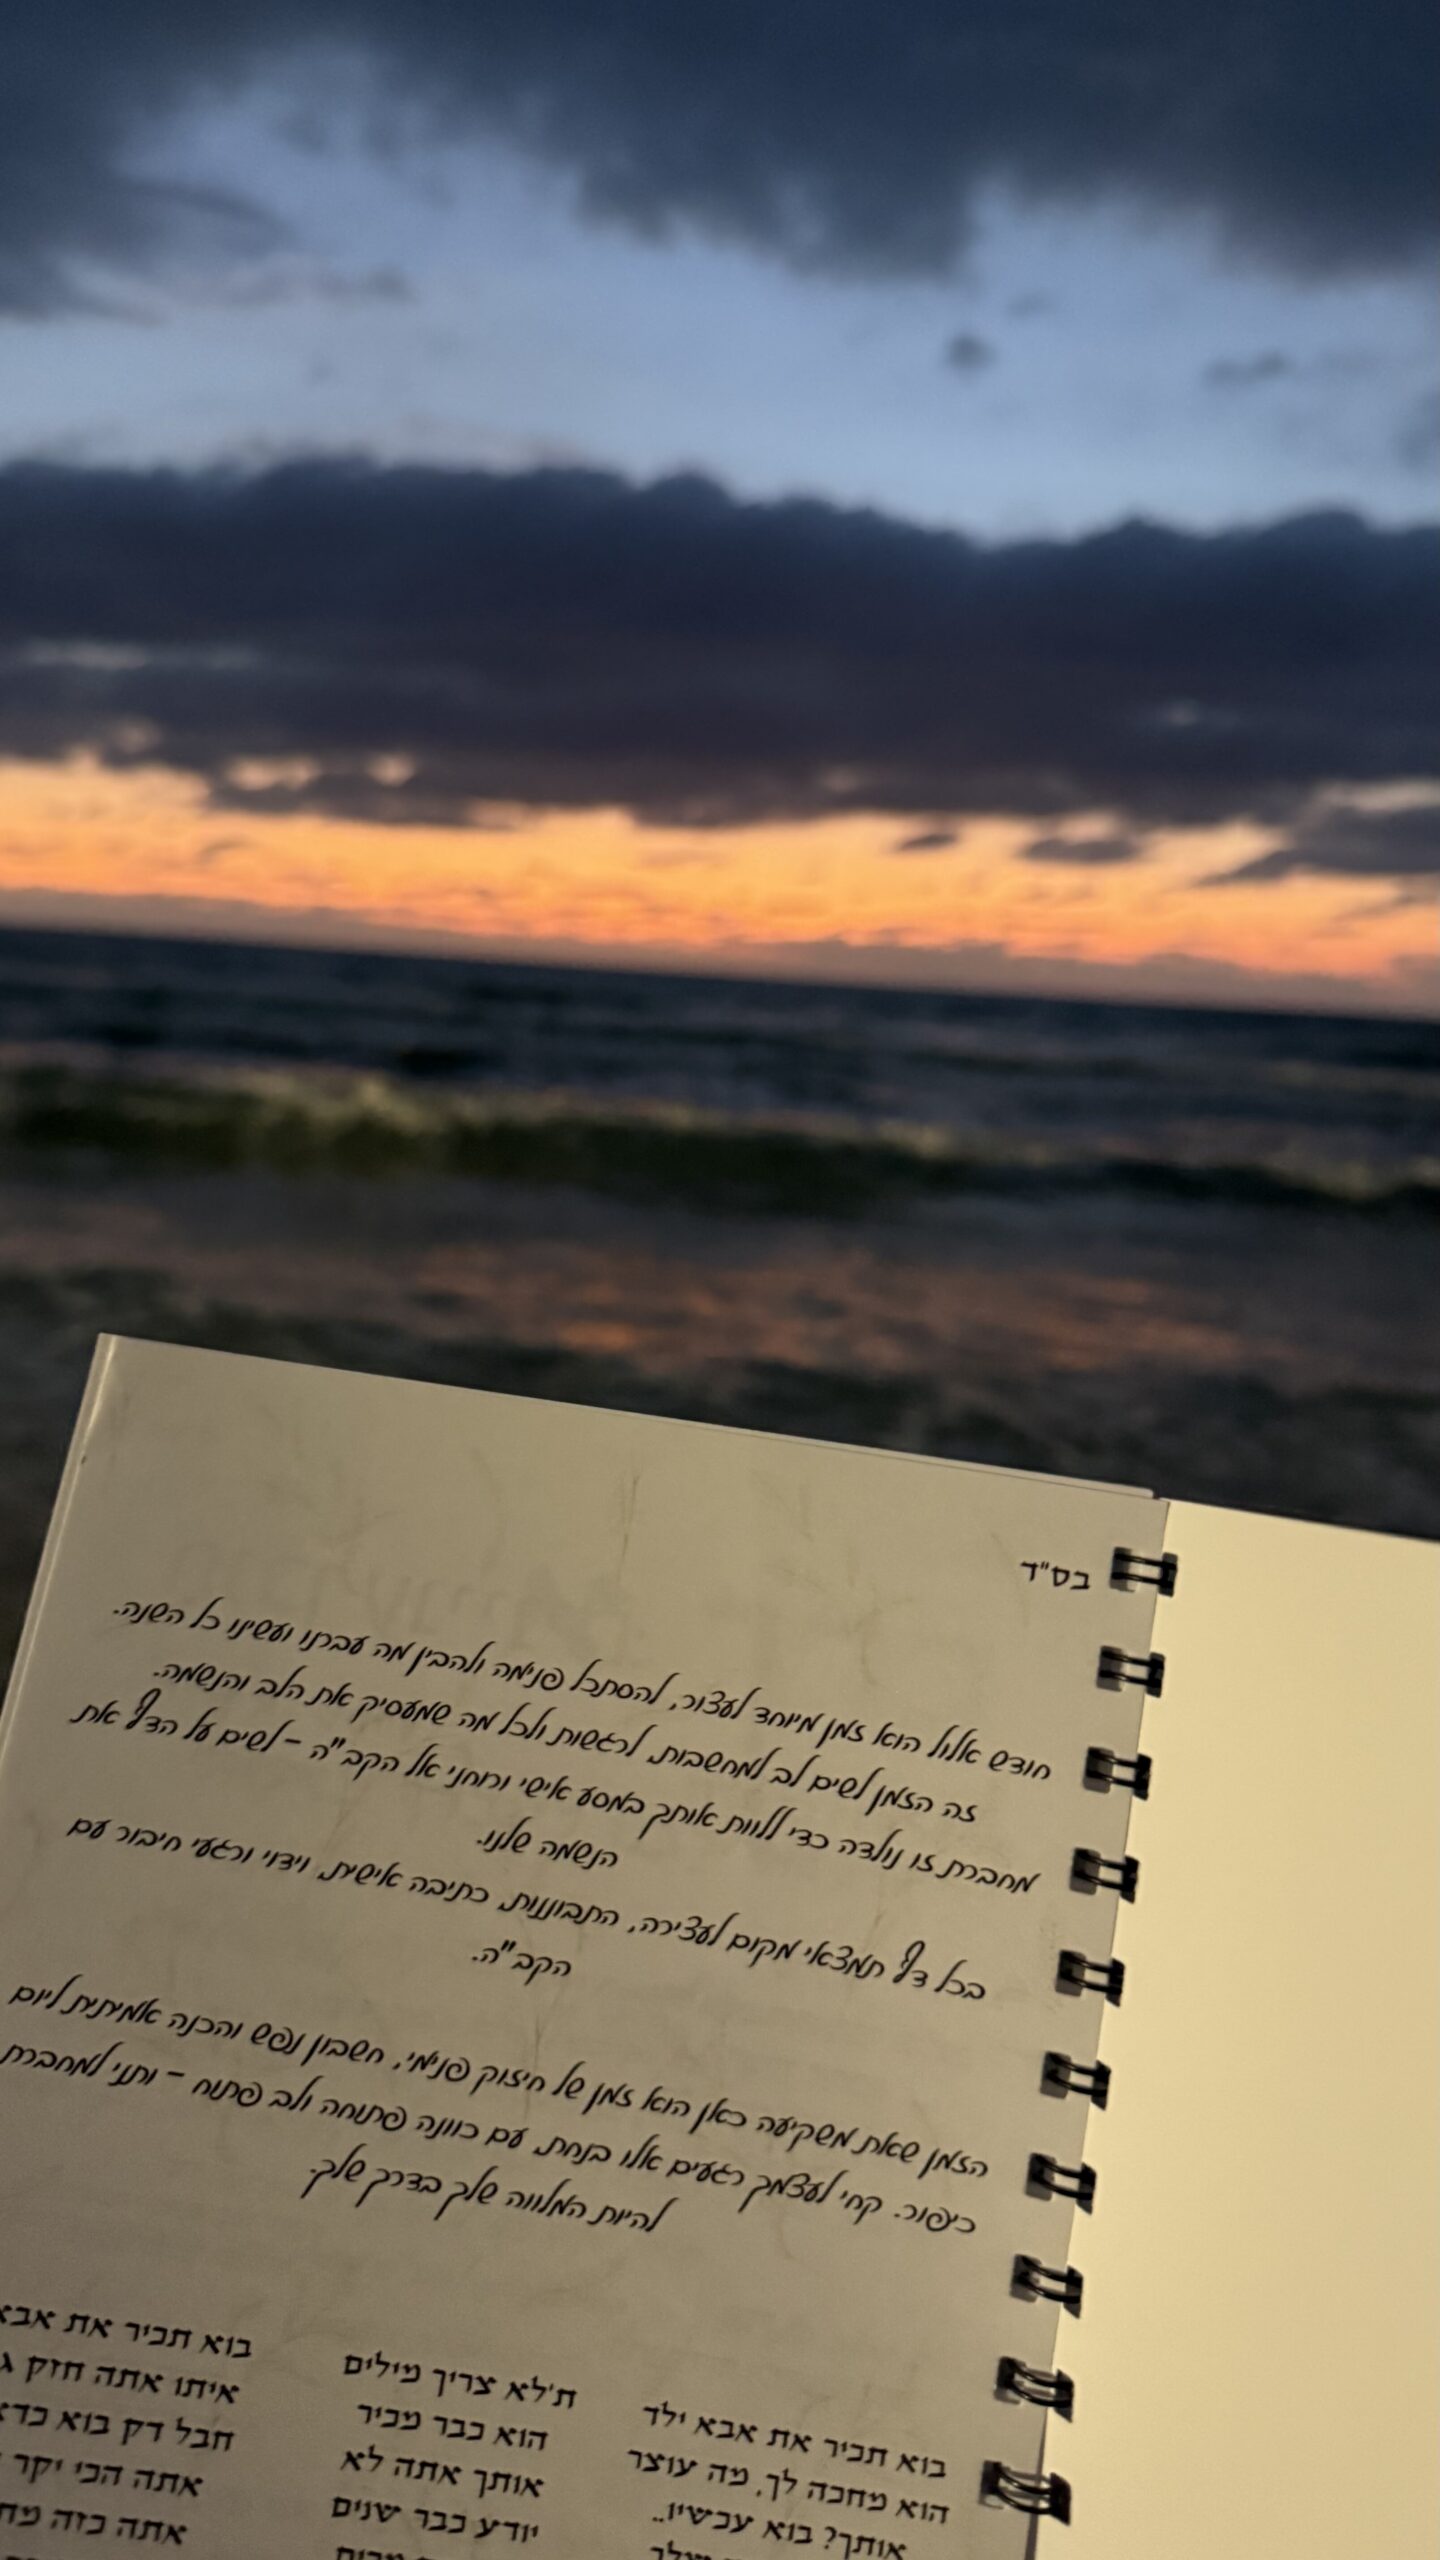 בס"ד
חודש אלול הוא זמן מיוחד לעצור, להסתכל פנימה ולהבין מה עברנו ועשינו כל השנה.
זה הזמן לשים לב למחשבות, לרגשות ולכל מה שמעסיק את הלב והנשמה.
מחברת זו נולדה כדי ללוות אותך במסע אישי ורוחני אל הקב"ה – לשים על הדף את
הנשמה שלנו.
בכל דף תמצאי מקום לעצירה, התבוננות, כתיבה אישית, וידוי ורגעי חיבור עם
הקב"ה.
הזמן שאת משקיעה כאן הוא זמן של חיזוק פנימי, חשבון נפש והכנה אמיתית ליום
כיפור. קחי לעצמך רגעים אלו בנחת, עם כוונה פתוחה ולב פתוח – ותני למחברת
להיות המלווה שלך בדרך שלך.
בוא תכיר את אבא ילד
הוא מחכה לך, מה עוצר
אותך? בוא עכשיו..
ת'לא צריך מילים
הוא כבר מכיר
אותך אתה לא
יודע כבר שנים
בוא תכיר את אבא
איתו אתה חזק
חבל דק בוא
אתה הכי יקר
אתה כזה